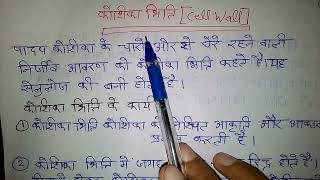 कोशिका भित्ति [Cell Wall]
पादप कोशिका के चारों ओर से घेरे रहने वाली
निर्जीव आवरण को कोशिका भित्ति कहते हैं। यह
सेलुलोज की बनी होती है।
कोशिका भित्ति के कार्य
① कोशिका भित्ति कोशिका को निश्चित आकृति और आकार
प्रदान करती है।
② कोशिका भित्ति में जगह छिद्र होते हैं।